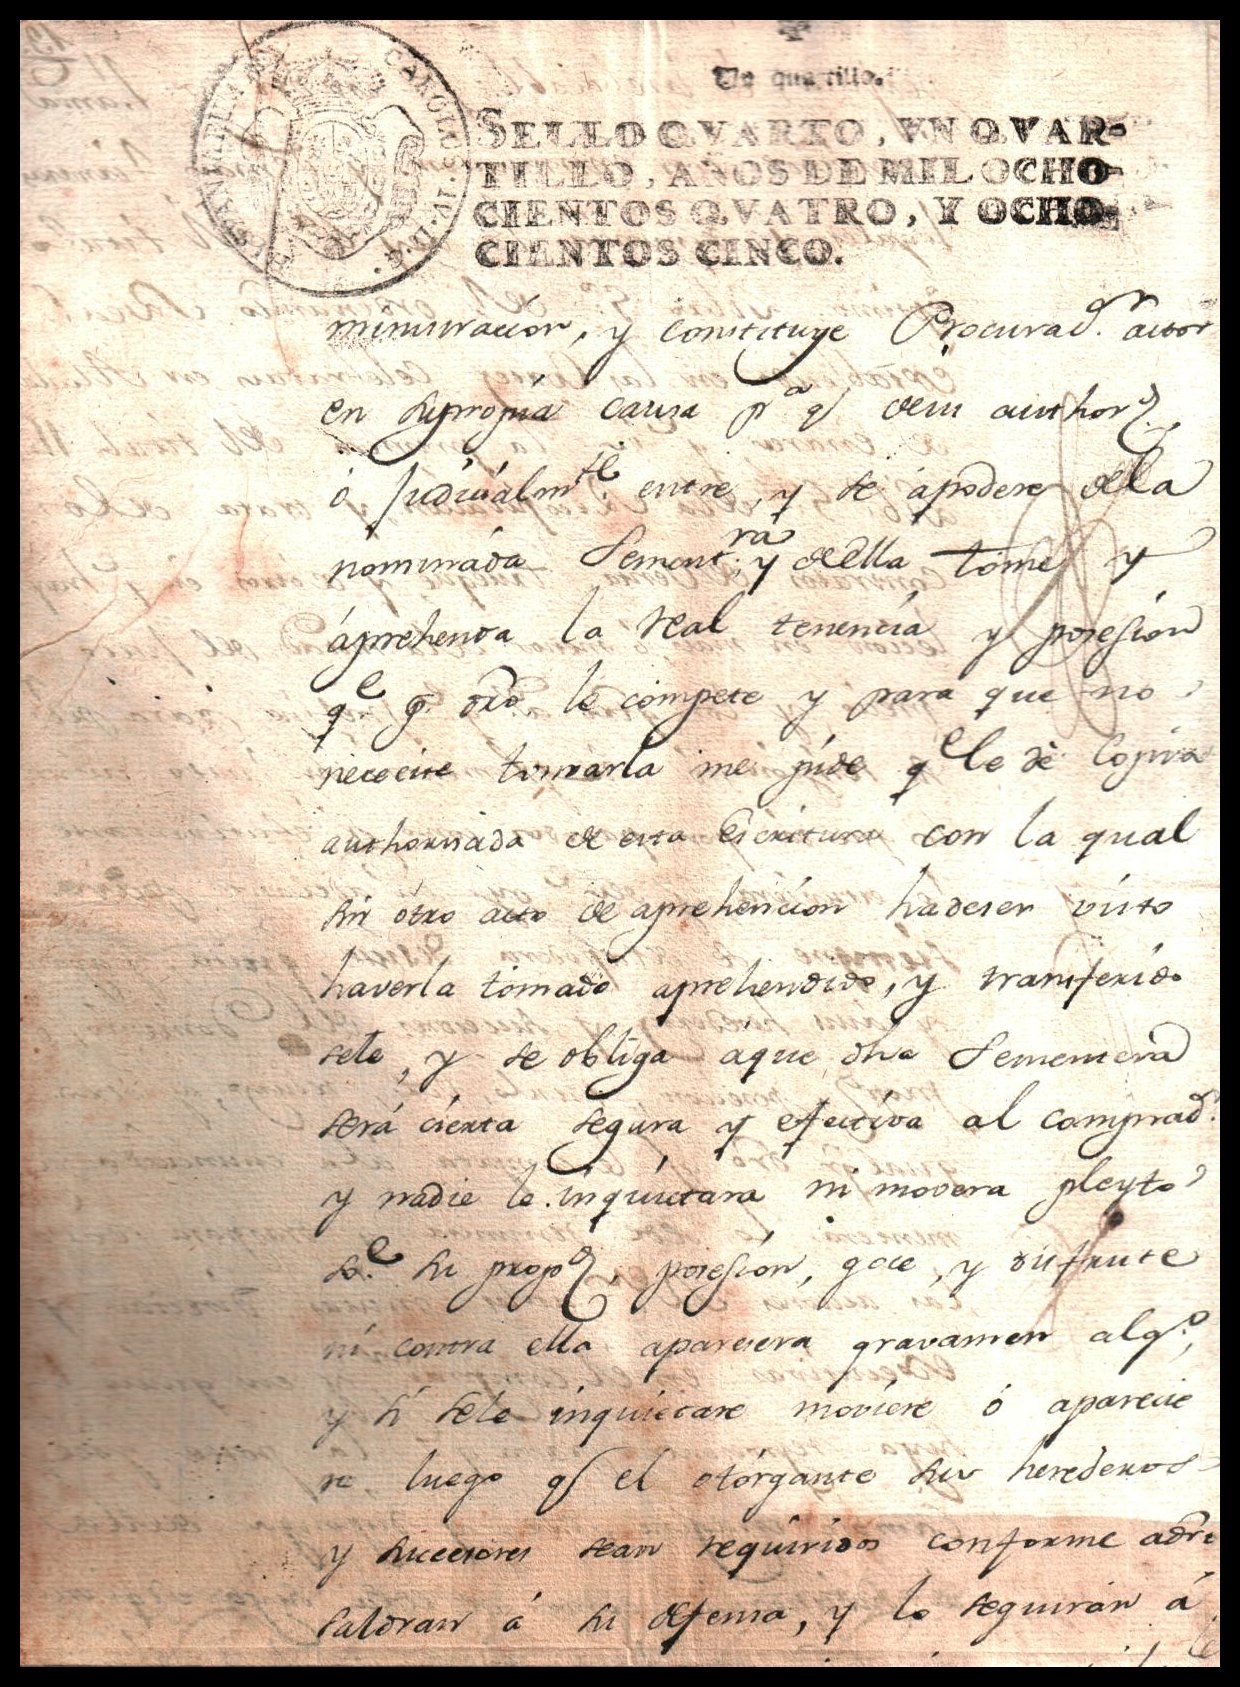 Vn quartillo.
SELLO QVARTO, VN QVAR-
TILLO, AÑOS DE MIL OCHO-
CIENTOS QVATRO, Y OCHO-
CIENTOS CINCO.
CAROLUS IV D G HISPANIAR
ministracion, y constituye Procurad.or actor
en su propia causa pa q desu authord.
ó Judicialmte. entre, y se apodere della
nominada Sement.ra y della tome y
aprehenda la Real tenencia y posesion
qe p. dro le compete y para que no
nececite tomarla me pide qe le dè Copia
authorisada de esta Escritura con la qual
sin ótro acto de aprehencion hadeser visto
haverla tomado aprehendido, y transferido
sele, y se obliga áque dha Sementera
será cierta segura y efectiva al comprad.
y nadie le inquietara ni movera pleyto
se. su propd. posesion, goce, y disfrute
ni contra ella aparesera gravamen algo.,
y si sele inquietare moviere ó aparecie
re luego q el otorgante sus herederos
y succesores sean requiridos conforme adro
saldran á su defensa, y lo seguirán á